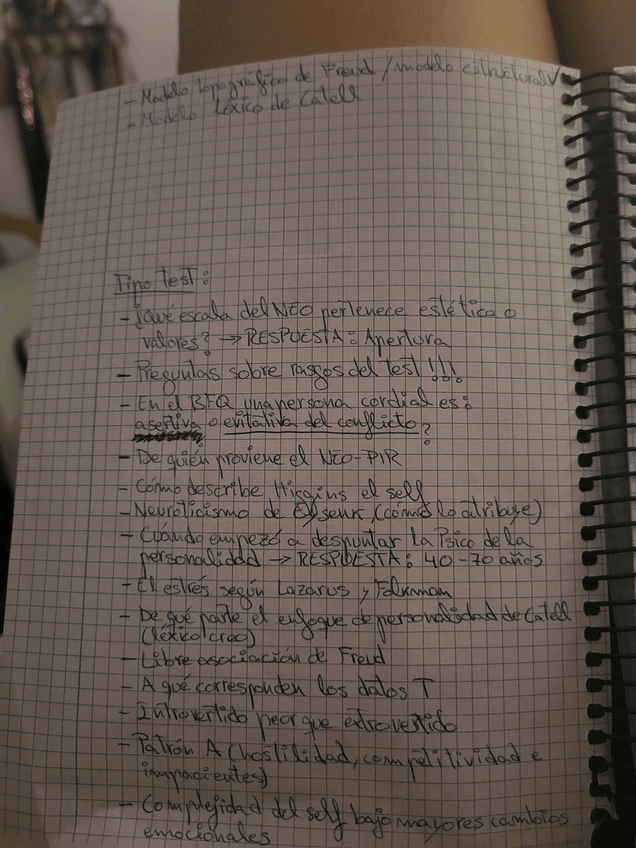 - Modelo topográfico de Freud / modelo estructural
- Modelo léxico de Catell
Tipo test:
- ¿Qué escala del NEO pertenece estética o
valores? → RESPUESTA: Apertura
- Preguntas sobre rasgos del test!!!
- En el BFQ una persona cordial es:
asertiva o evitativa del conflicto?
- De quién proviene el NEO-PIR
- Cómo describe Higgins el self
- Neuroticismo de (cómo lo atribuye)
- Cuándo empezó a despuntar la Psico de la
personalidad → RESPUESTA: 40-70 años
- El estrés según Lazarus y
- De qué parte el enfoque de personalidad de Catell
(léxico creo)
- Libre asociación de Freud
- A qué corresponden los datos T
- Introvertido peor que extrovertido
- Patrón A (hostilidad, competitividad e
impacientes)
- Complejidad del self bajo mayores cambios
emocionales